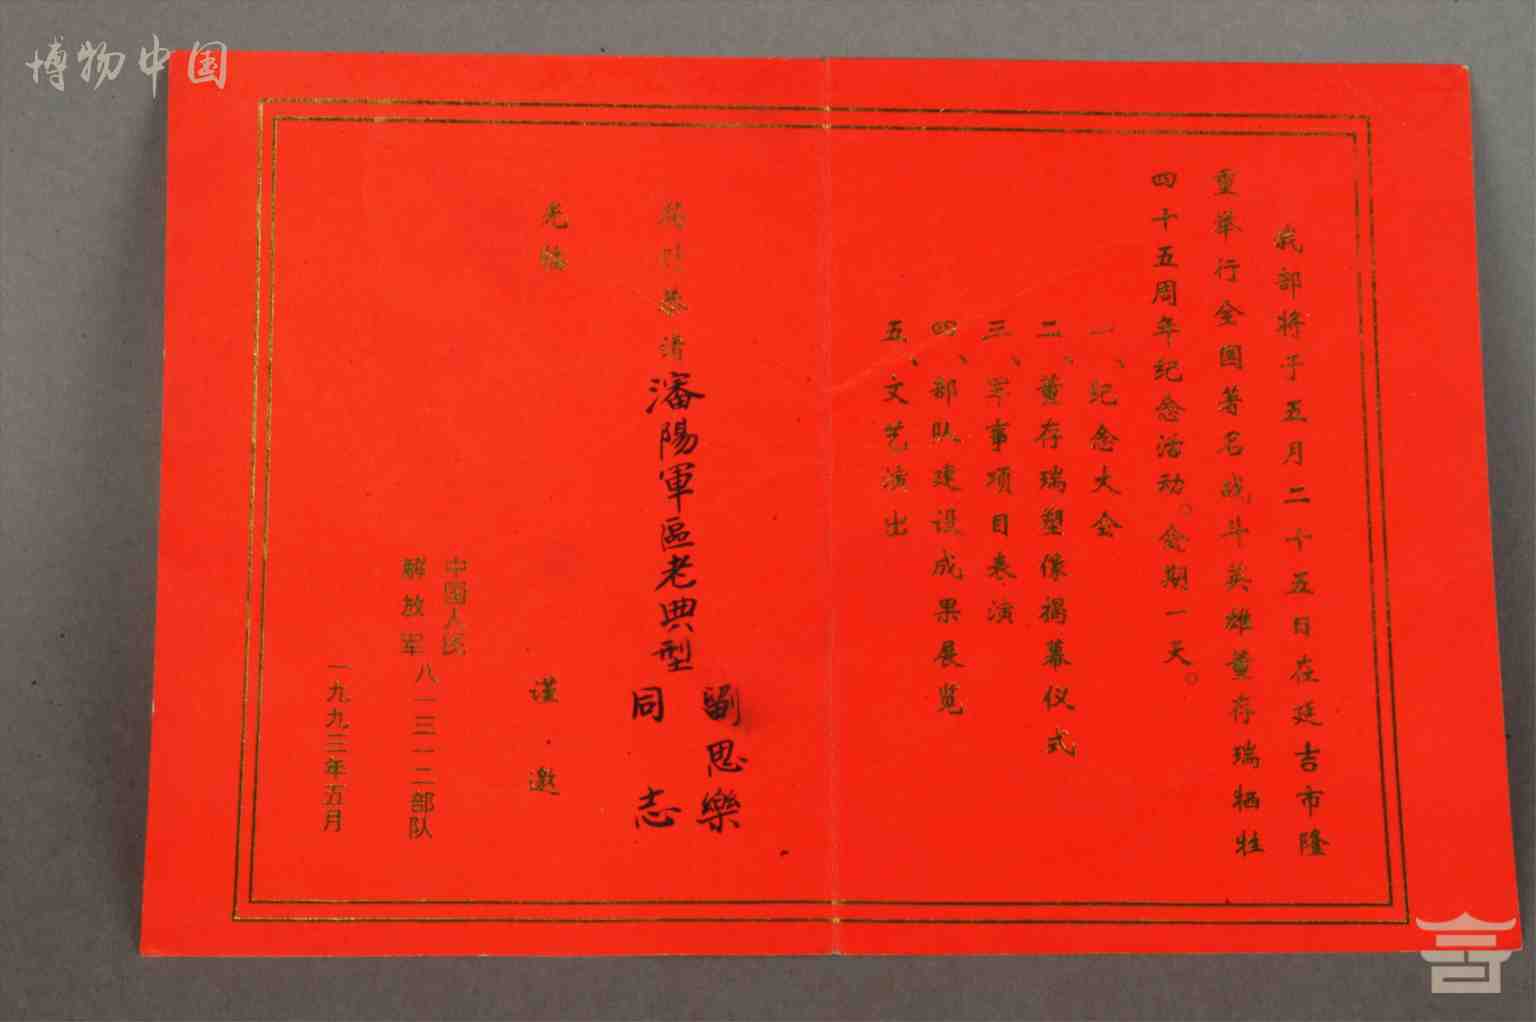 博物中国
我部将于五月二十五日在延吉市隆
重举行全国著名战斗英雄董存瑞牺牲
四十五周年纪念活动。会期一天。
一、纪念大会
二、董存瑞塑像揭幕仪式
三、军事项目表演
四、部队建设成果展览
五、文艺演出
届时恭请瀋陽軍區老典型
劉思樂
同志
光临
谨邀
中国人民
解放军
八一三一二部队
一九九三年五月